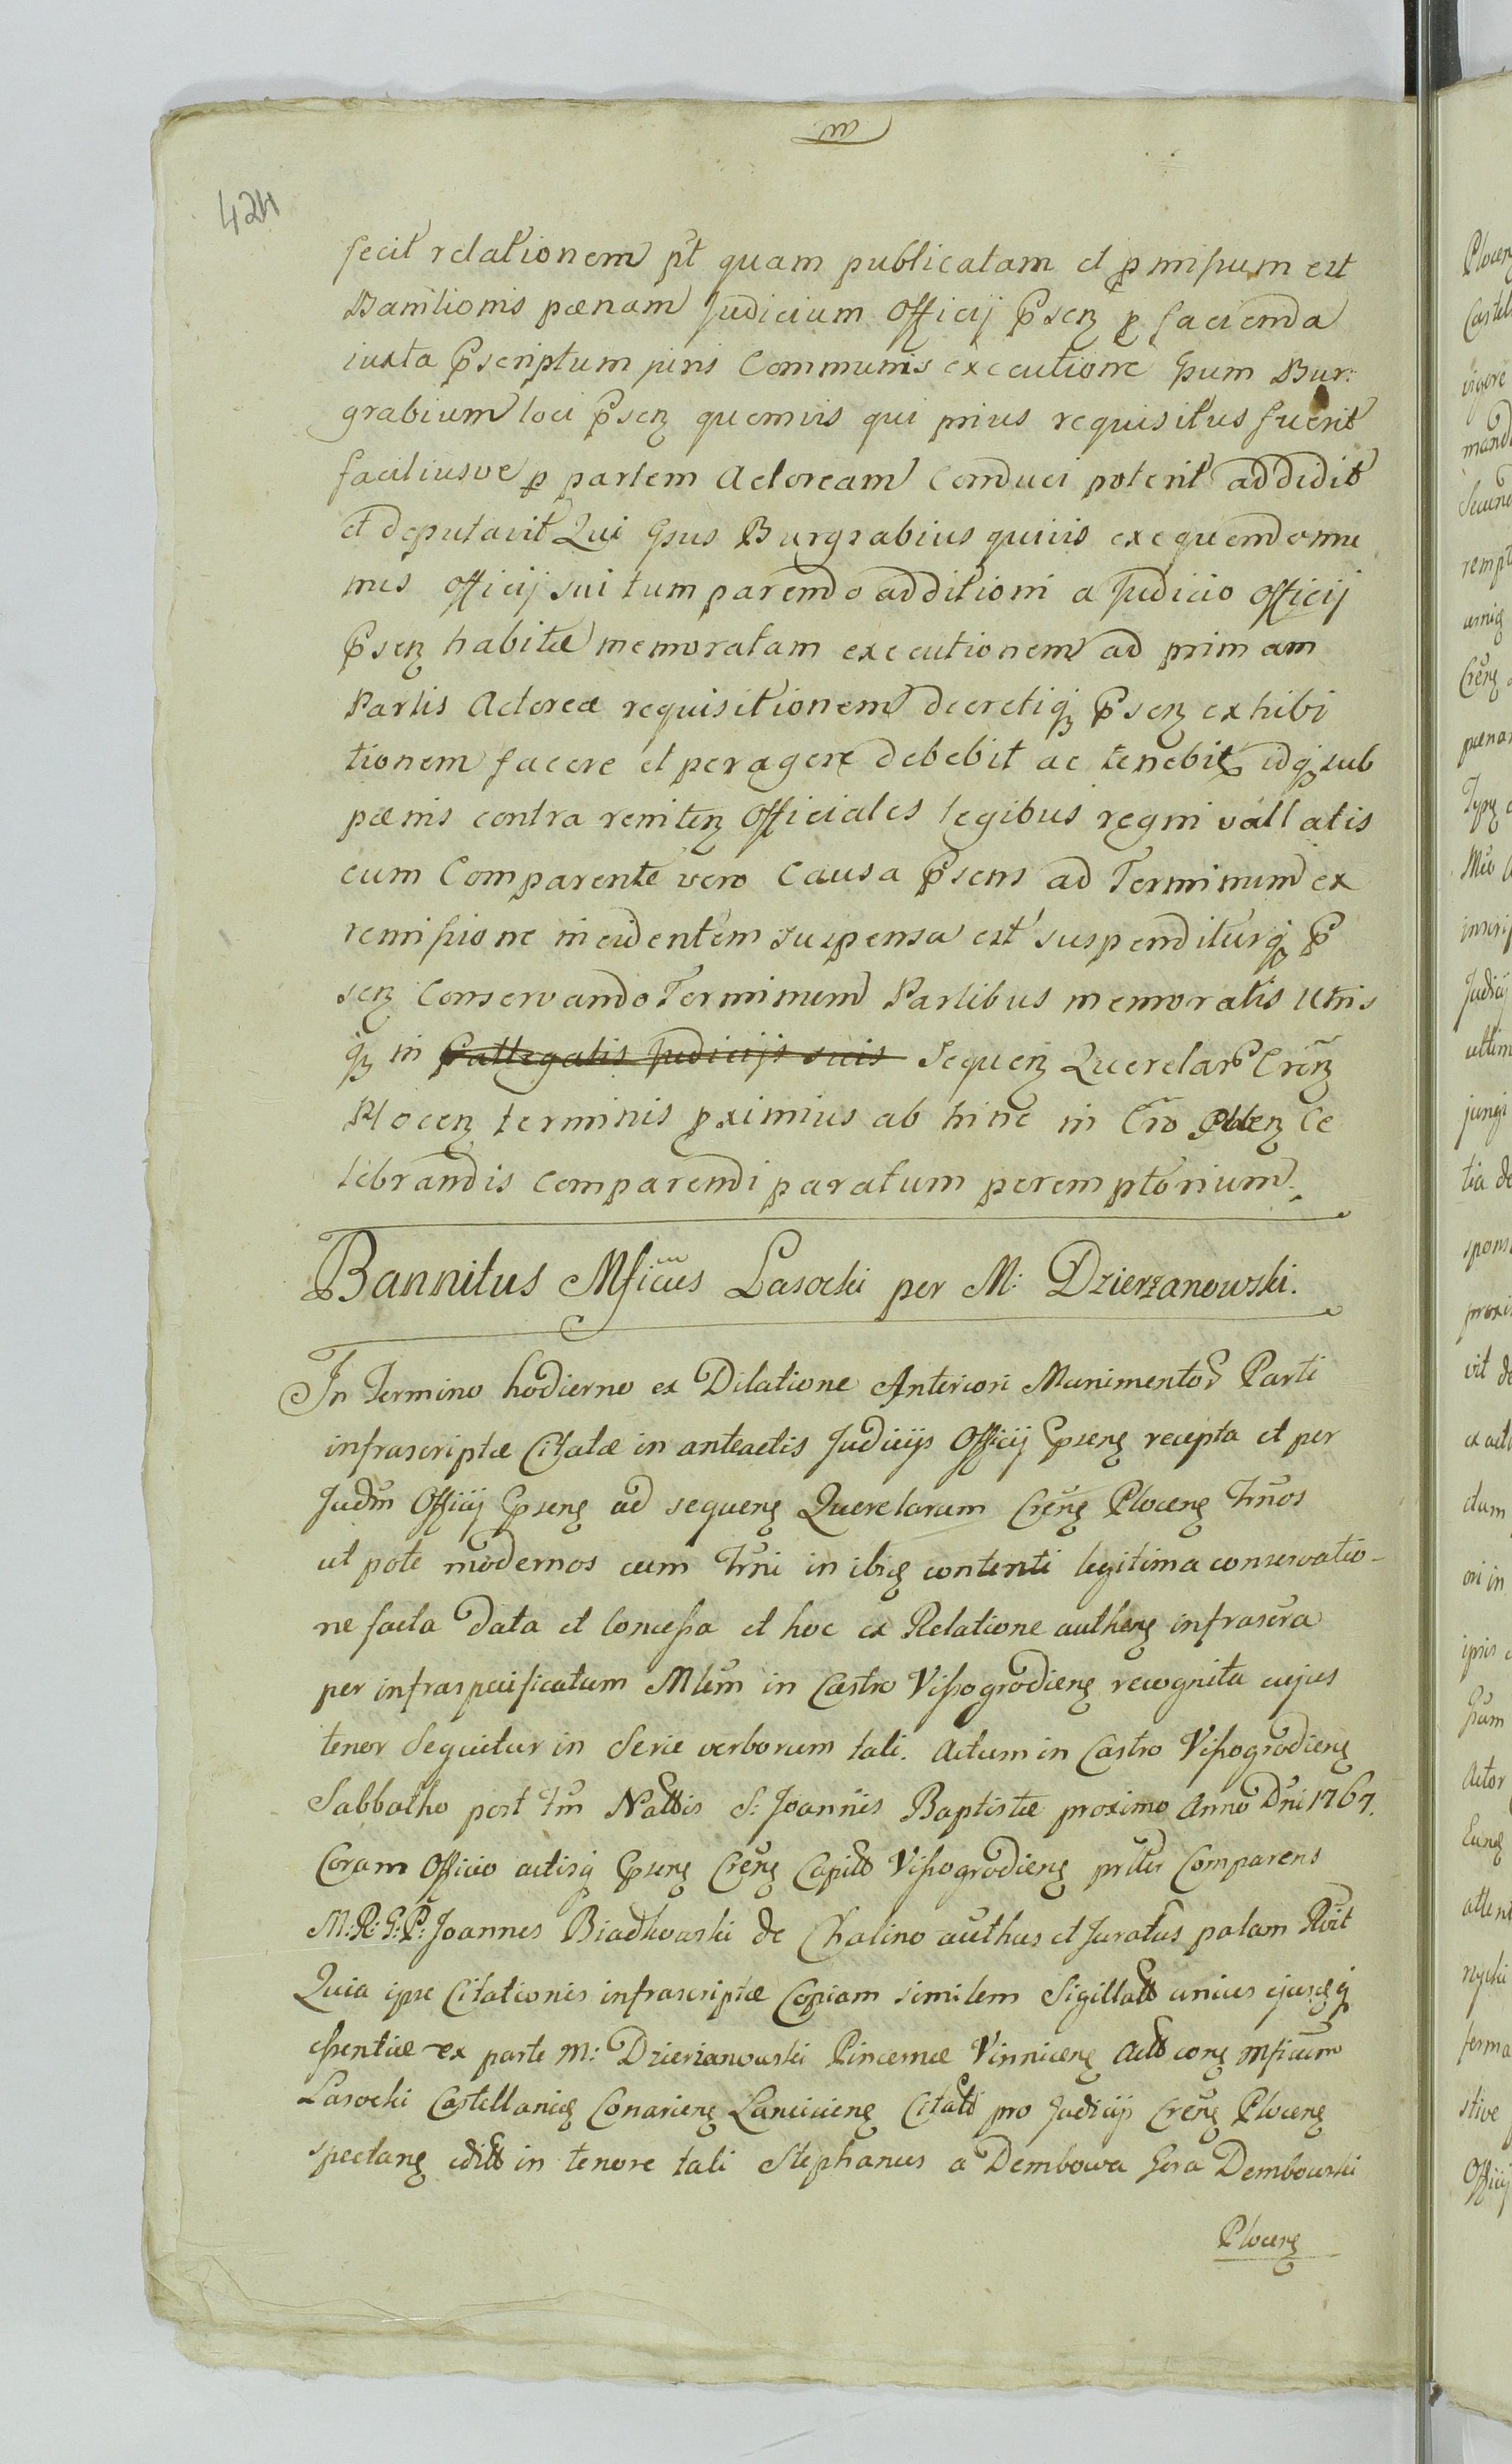 m
424
fecit relationem pt quam publicatam et p missum est
Banitionis pœnam Judicium Officij Psenz p facienda
iuxta Pscriptum juris Communis executione Gsum Bur:
grabium loci Psenz quemvis qui prius requisitus fuerit
faciliusve p partem Actoream Conduci poterit addidit
et deputavit Qui Gsus Burgrabius quivis exequendo mu
nus officij sui tum parendo additioni a Judicio Officij
Psenz habitæ memoratam executionem ad primam
Partis Actoreæ requisitionem decretiq Psenz exhibi
tionem facere et peragere debebit ac tenebit idq sub
pœnis contra renitenz Officiales legibus regni vallatis
cum Comparente vero Causa Psens ad Terminum ex
remissione incidentem suspensa est suspenditurq P
senz Conservando Terminum Partibus memoratis Utris
q in Pattegatis Judicijs suis Sequenz Querelar Crenz
Plocenz terminis pximius ab hinc in Cro Plocenz Ce
lebrandis comparendi paratum peremptorium.
Bannitus Mficus Lasocki per M: Dzierzanowski.
In Termino hodierno ex Dilatione Anteriori Munimentor Parti
infrascriptæ Citatæ in anteactis Judicijs Officij Psenz recepta et per
Judm Officij Psenz ad sequenz Querelarum Crenz Plocenz Trnos
ut pote modernos cum Trni in ibiq contenti legitima conservatio-
ne facta data et Concessa et hoc ex Relatione authenz infrascra
per infraspecificatum Mlem in Castro Vissogrodienz recognita cujus
tenor Sequitur in Serie verborum tali. Actum in Castro Vissogrodienz
Sabbatho post fm Nattis S: Joannis Baptistæ proximo Anno Dni 1767.
Coram Officio actisq Psenz Crenz Capitt Vissogrodienz prltr Comparens
M:R:G:P: Joannes Biadkowski de Chalino authus et Juratus palam Rvit
Quia ipse Citationis infrascriptæ Copiam similem Sigillatt unius ejusdq
essentiæ ex parte M: Dzierzanowski Pincernæ Vinnicenz Actt conz Mficum
Lasocki Castellanicz Conarienz Lancicienz Citatt pro Judicijs Crenz Plocenz
spectanz editt in tenore tali Stephanus a Dembowa Gora Dembowski
Plocenz